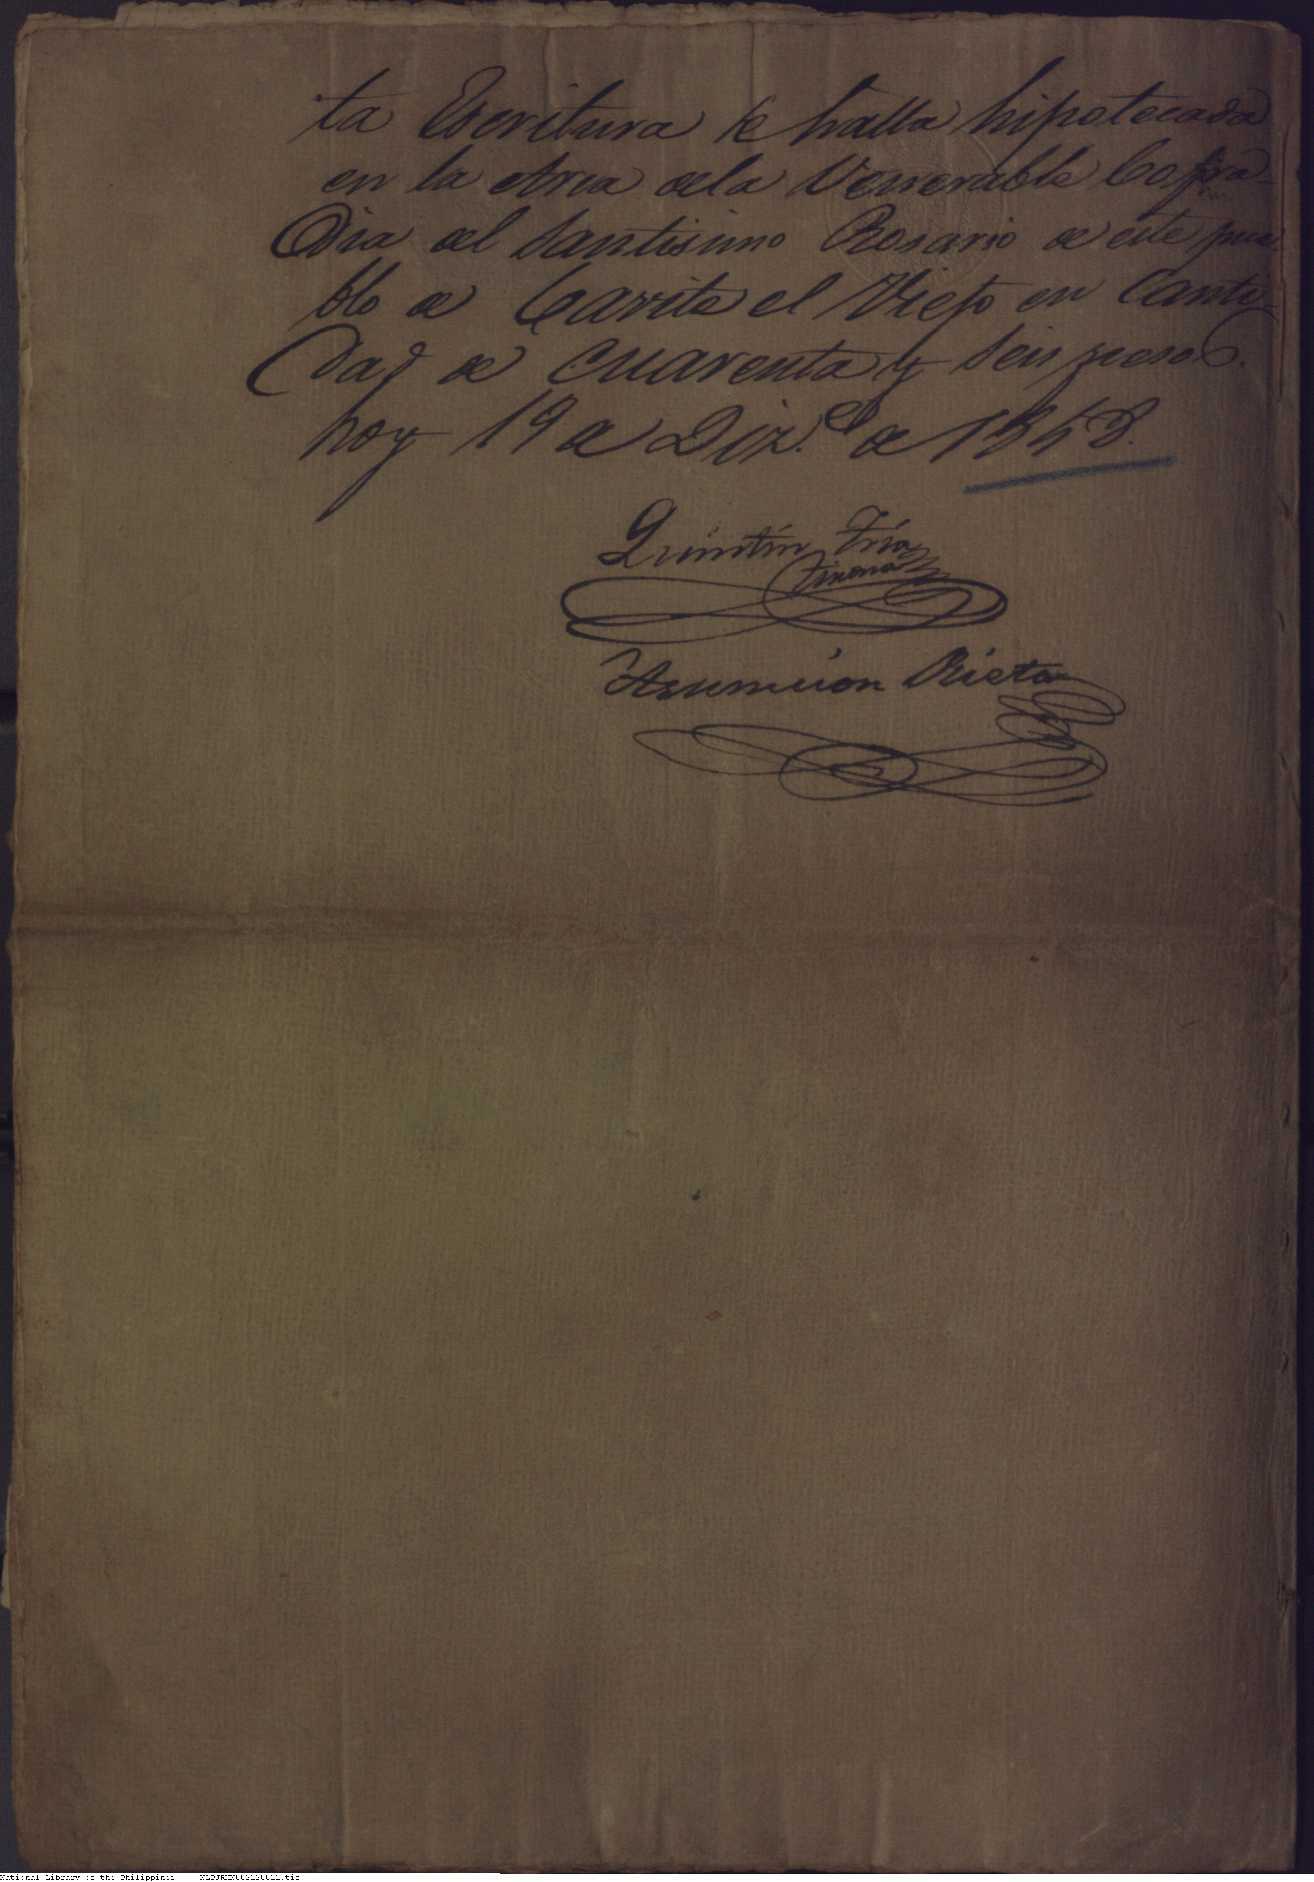 ta Escritura se halla hipotecada
en la Arca dela Venerable Cofra-
Dia del Santisimo Rosario de este pue
blo de Cavite el Viejo en Canti-
dad de cuarenta y Seis pesos.
hoy 19 de Diz.e de 1848.
Quintin Tria
Tirona
Asumcion Rieta
National Library of the Philippines